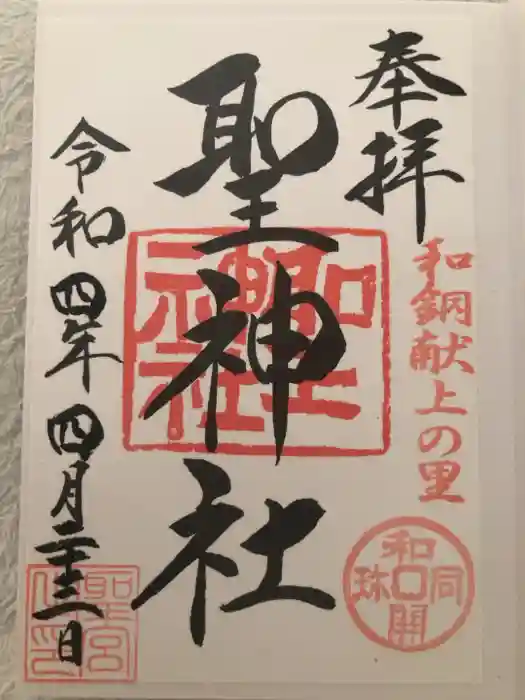 奉拝
和銅献上の里
和同開珎
聖神社
聖神社
令和四年四月二十三日